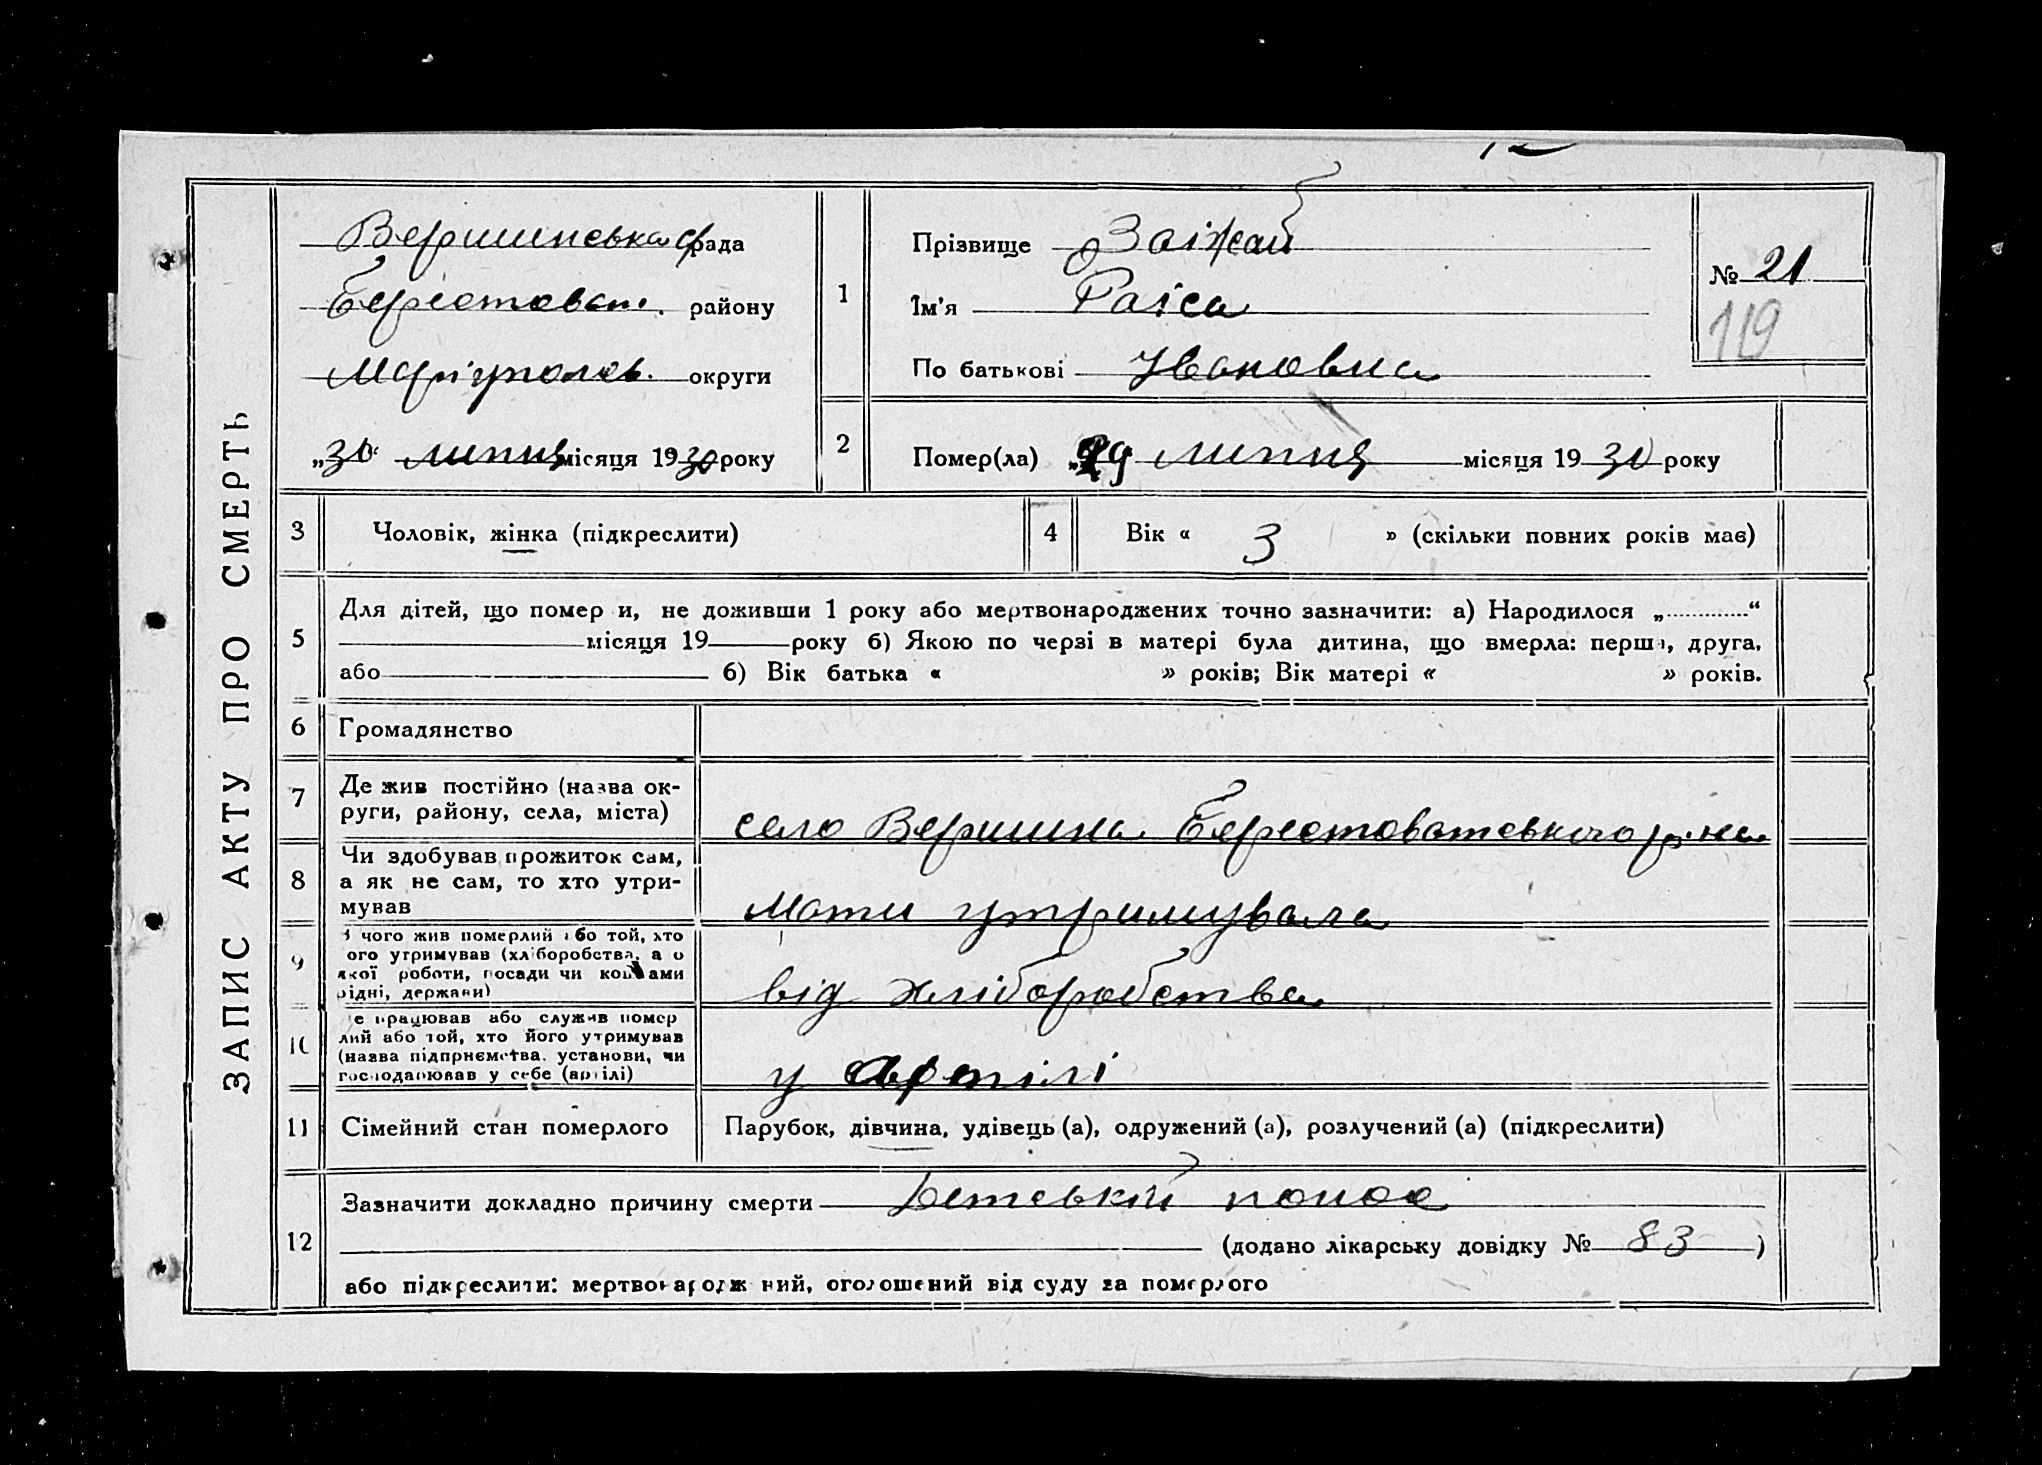 ЗАПИС АКТУ ПРО СМЕРТЬ
Вершинська с/рада
Берестоват. району
Маріупольс. округи
„30“ липня місяця 1930 року
1
Прізвище Заіжай
Їм’я Раіса
По батькові Ивановна
№ 21
119
2
Помер(ла) „29 липня місяця 1930 року
3
Чоловік, жінка (підкреслити)
4
Вік « 3 » (скільки повних років має)
5
Для дітей, що помер и, не доживши 1 року або мертвонароджених точно зазначити: а) Народилося „ “
місяця 19 року б) Якою по черзі в матері була дитина, що вмерла: перша, друга,
або б) Вік батька « » років; Вік матері « » років.
6
Громадянство
7
Де жив постійно (назва ок-
руги, району, села, міста)
село Вершина Берестоватського р-на
8
Чи здобував прожиток сам,
а як не сам, то хто утри-
мував
Мати утримувала
9
З чого жив померлий або той, хто
ого утримував (хліборобства, а о
якої роботи, посади чи коштами
рідні, держави)
від хліборобства
10
е працював або служив помер
лий або той, хто його утримував
(назва підприємства, установи, чи
господарював у себе (артілі)
у артілі
11
Сімейний стан померлого
Парубок, дівчина, удівець (а), одружений (а), розлучений (а) (підкреслити)
12
Зазначити докладно причину смерти Детській понос
(додано лікарську довідку № 83 )
або підкреслити: мертвонароджений, оголошений від суду за померлого